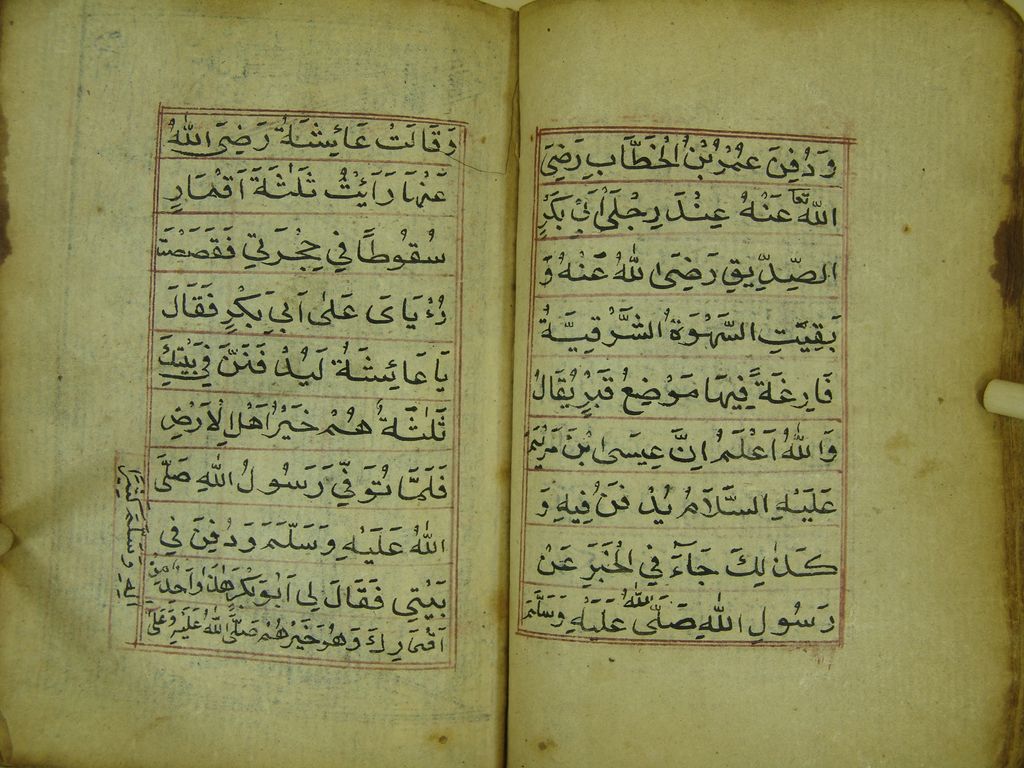 وَدُفِنَ عُمَرُ بْنُ الْخَطَّابِ رَضِىَ
اللّٰهُ تَعَا عَنْهُ عِنْدَ رِجْلَىْ اَبِى بَكْرٍ
الصِّدِّيقِ رَضِىَ اللّٰهُ عَنْهُ وَ
بَقِيَتِ السَّهْوَةُ الشَّرْقِيَّةُ
فَارِغَةً فِيهَا مَوْضِعُ قَبْرٍ يُقَالُ
وَاللّٰهُ اَعْلَمُ اِنَّ عِيسَى ابْنَ مَرْيَمَ
عَلَيْهِ السَّلَامُ يُدْفَنُ فِيهِ وَ
كَذٰلِكَ جَاءَ فِى الْخَبَرِ عَنْ
رَسُولِ اللّٰهِ صَلَّى اللّٰهُ عَلَيْهِ وَسَلَّمَ
وَقَالَتْ عَائِشَةُ رَضِىَ اللّٰهُ
عَنْهَا رَاَيْتُ ثَلٰثَةَ اَقْمَارٍ
سُقُوطًا فِى حُجْرَتِى فَقَصَصْتُ
رُءْيَاىَ عَلٰى اَبِى بَكْرٍ فَقَالَ
يَا عَائِشَةُ لَيُدْفَنَنَّ فِى بَيْتِكِ
ثَلٰثَةٌ هُمْ خَيْرُ اَهْلِ الْاَرْضِ
فَلَمَّا تُوُفِّىَ رَسُولُ اللّٰهِ صَلَّى
اللّٰهُ عَلَيْهِ وَسَلَّمَ وَدُفِنَ فِى
بَيْتِى فَقَالَ لِى اَبُو بَكْرٍ هٰذَا وَاحِدٌ مِنْ
اَقْمَارِكِ وَهُوَ خَيْرُهُمْ صَلَّى اللّٰهُ عَلَيْهِ وَعَلٰى
اٰلِهِ وَسَلَّمَ كَثِيرًا